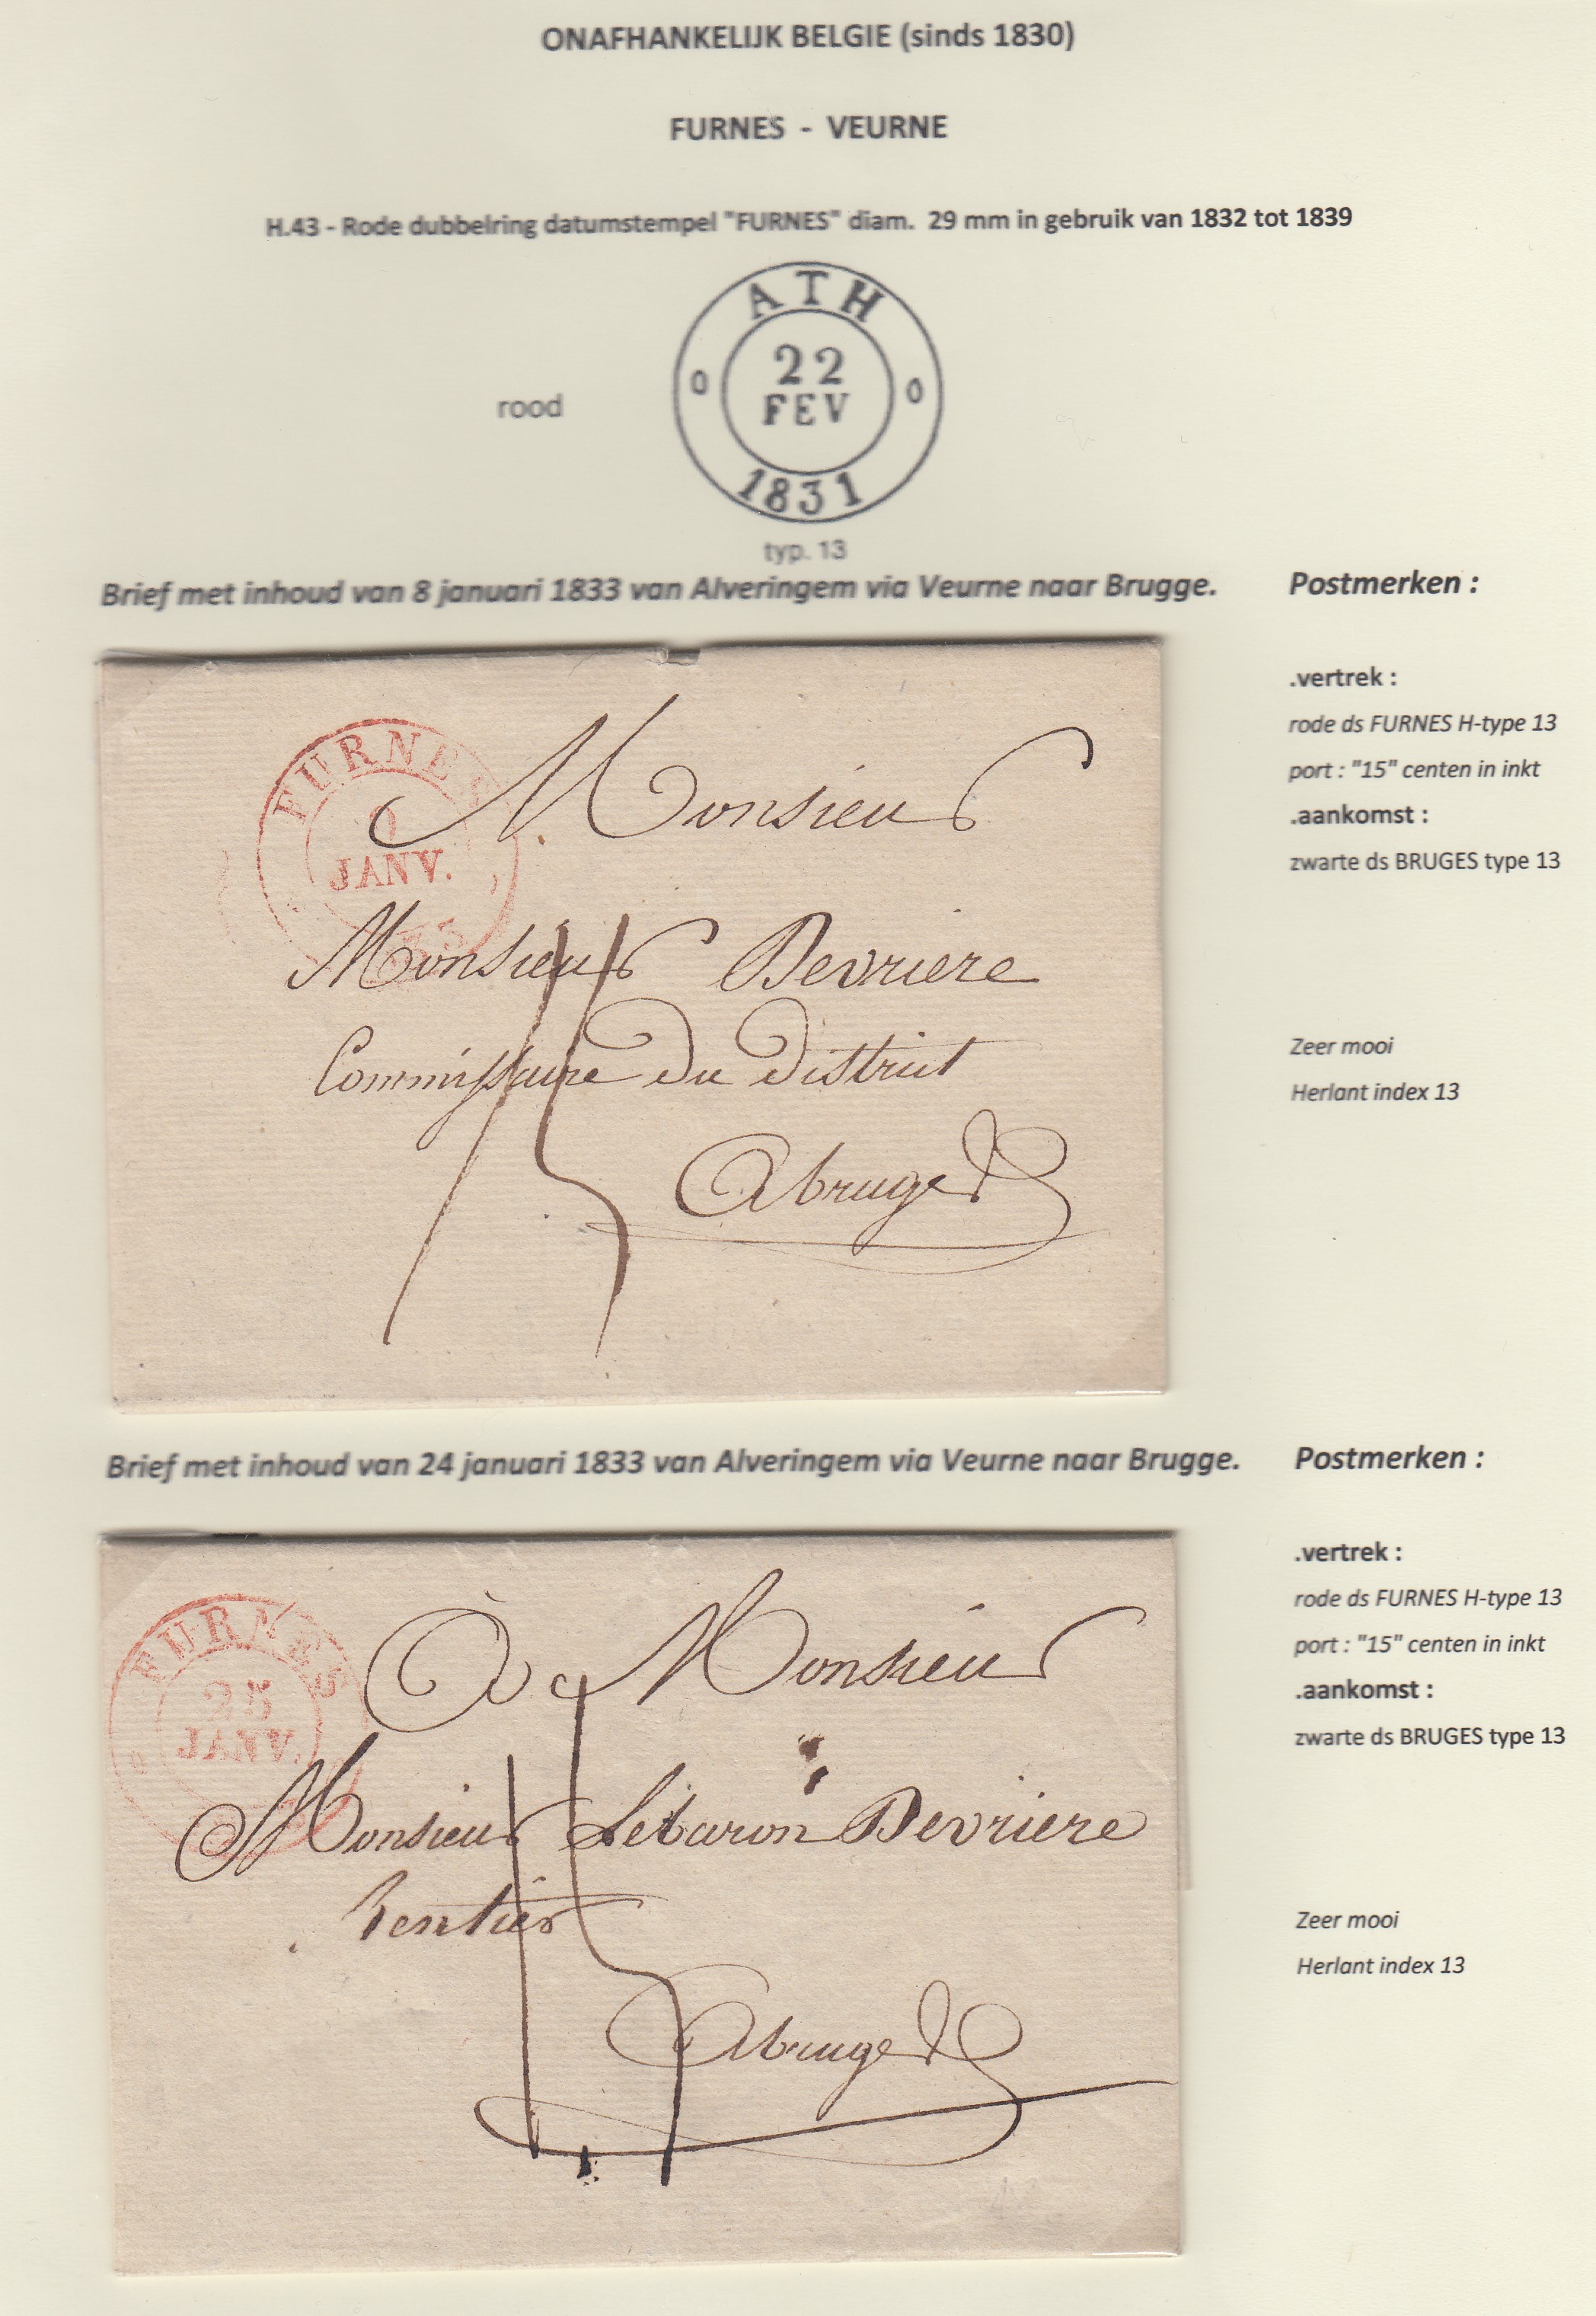 ONAFHANKELIJK BELGIE (sinds 1830)
FURNES - VEURNE
H.43 - Rode dubbelring datumstempel "FURNES" diam. 29 mm in gebruik van 1832 tot 1839
rood
ATH
22
FEV
1831
typ. 13
Brief met inhoud van 8 januari 1833 van Alveringem via Veurne naar Brugge.
Postmerken :
.vertrek :
rode ds FURNES H-type 13
port : "15" centen in inkt
.aankomst :
zwarte ds BRUGES type 13
Zeer mooi
Herlant index 13
FURNES
JANV.
Monsieur
Monsieur Devriere
Commissaire du district
A bruges
15
Brief met inhoud van 24 januari 1833 van Alveringem via Veurne naar Brugge.
Postmerken :
.vertrek :
rode ds FURNES H-type 13
port : "15" centen in inkt
.aankomst :
zwarte ds BRUGES type 13
Zeer mooi
Herlant index 13
FURNES
25
JANV.
À Monsieur
Monsieur Lebaron Devriere
Rentier
A bruges
15